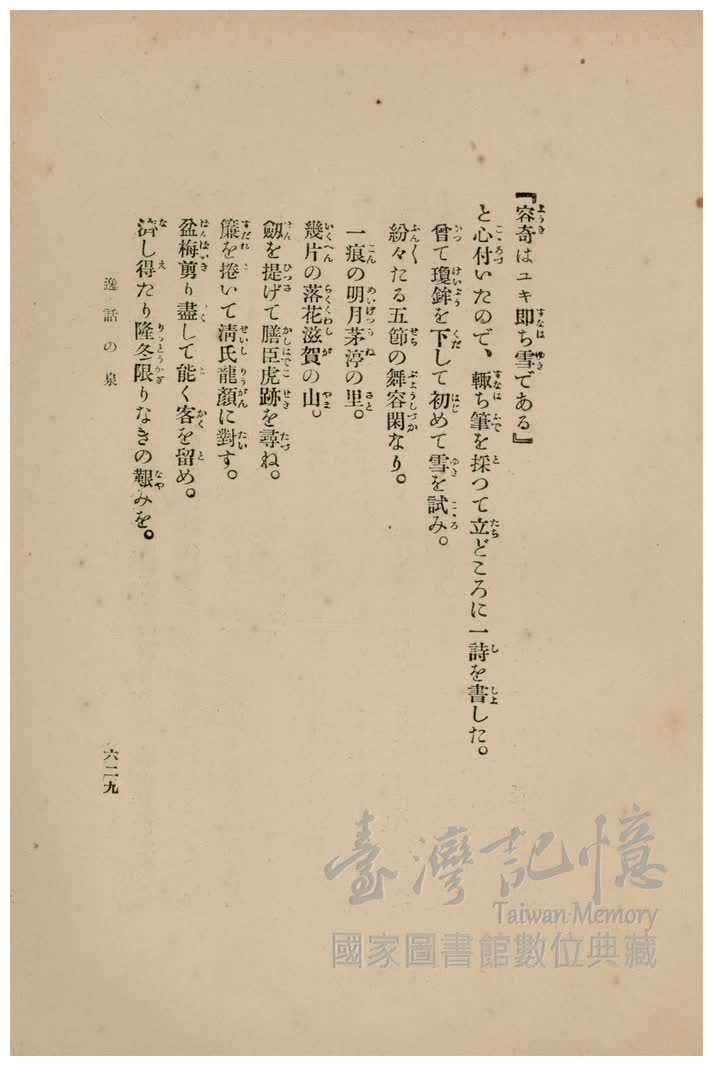 『容奇はユキ即ち雪である』
と心付いたので、輙ち筆を採つて立どころに一詩を書した。
曾て瓊鉾を下して初めて雪を試み。
紛々たる五節の舞容閑なり。
一痕の明月茅渟の里。
幾片の落花滋賀の山。
劔を提げて膳臣虎跡を尋ね。
簾を捲いて淸氏龍顏に對す。
盆梅剪り盡して能く客を留め。
濟し得たり隆冬限りなきの艱みを。
逸話の泉
六二九
臺灣記憶
Taiwan Memory
國家圖書館數位典藏